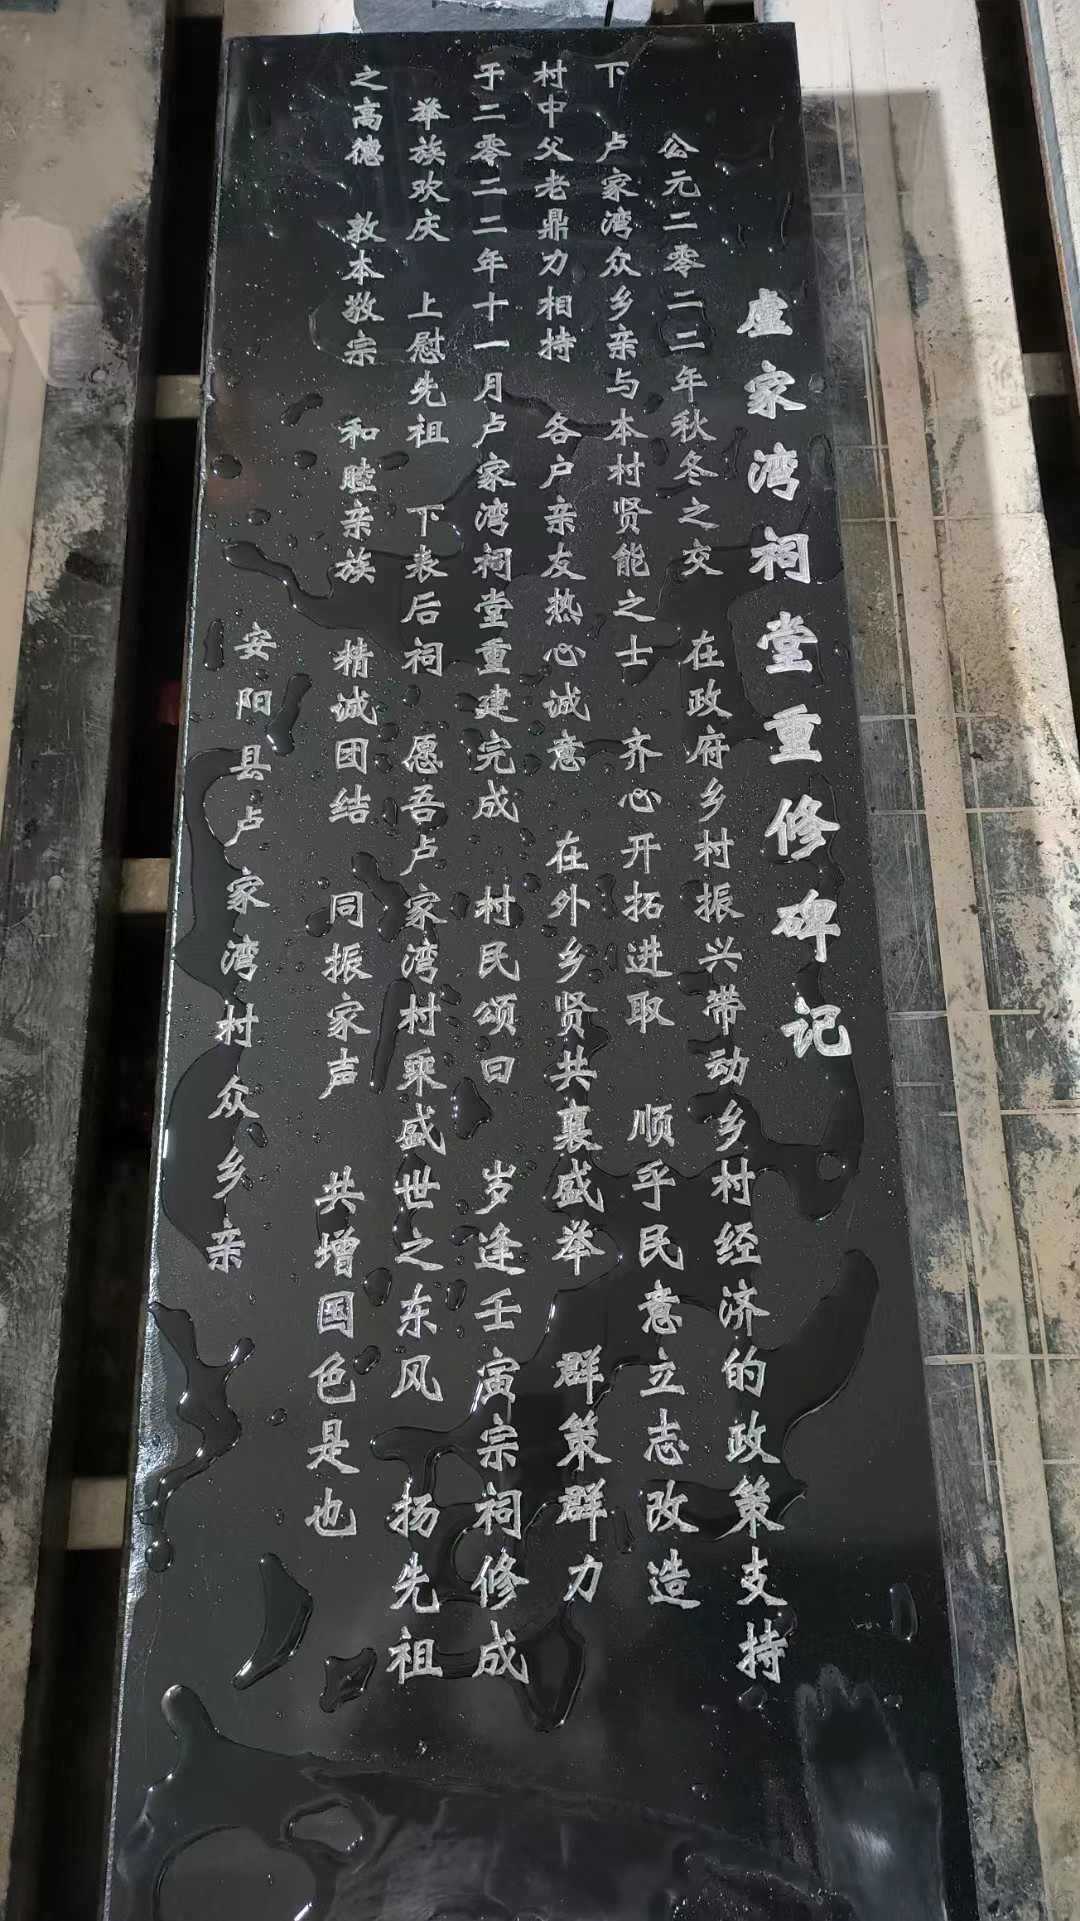 盧家湾祠堂重修碑记
公元二零二二年秋冬之交 在政府乡村振兴带动乡村经济的政策支持
下 卢家湾众乡亲与本村贤能之士 齐心开拓进取 顺乎民意立志改造
村中父老鼎力相持 各户亲友热心诚意 在外乡贤共襄盛举 群策群力
于二零二二年十一月卢家湾祠堂重建完成 村民颂曰 岁逢壬寅宗祠修成
举族欢庆 上慰先祖 下表后祠 愿吾卢家湾村乘盛世之东风 扬先祖
之高德 敦本敬宗 和睦亲族 精诚团结 同振家声 共增国色是也
安阳县卢家湾村众乡亲